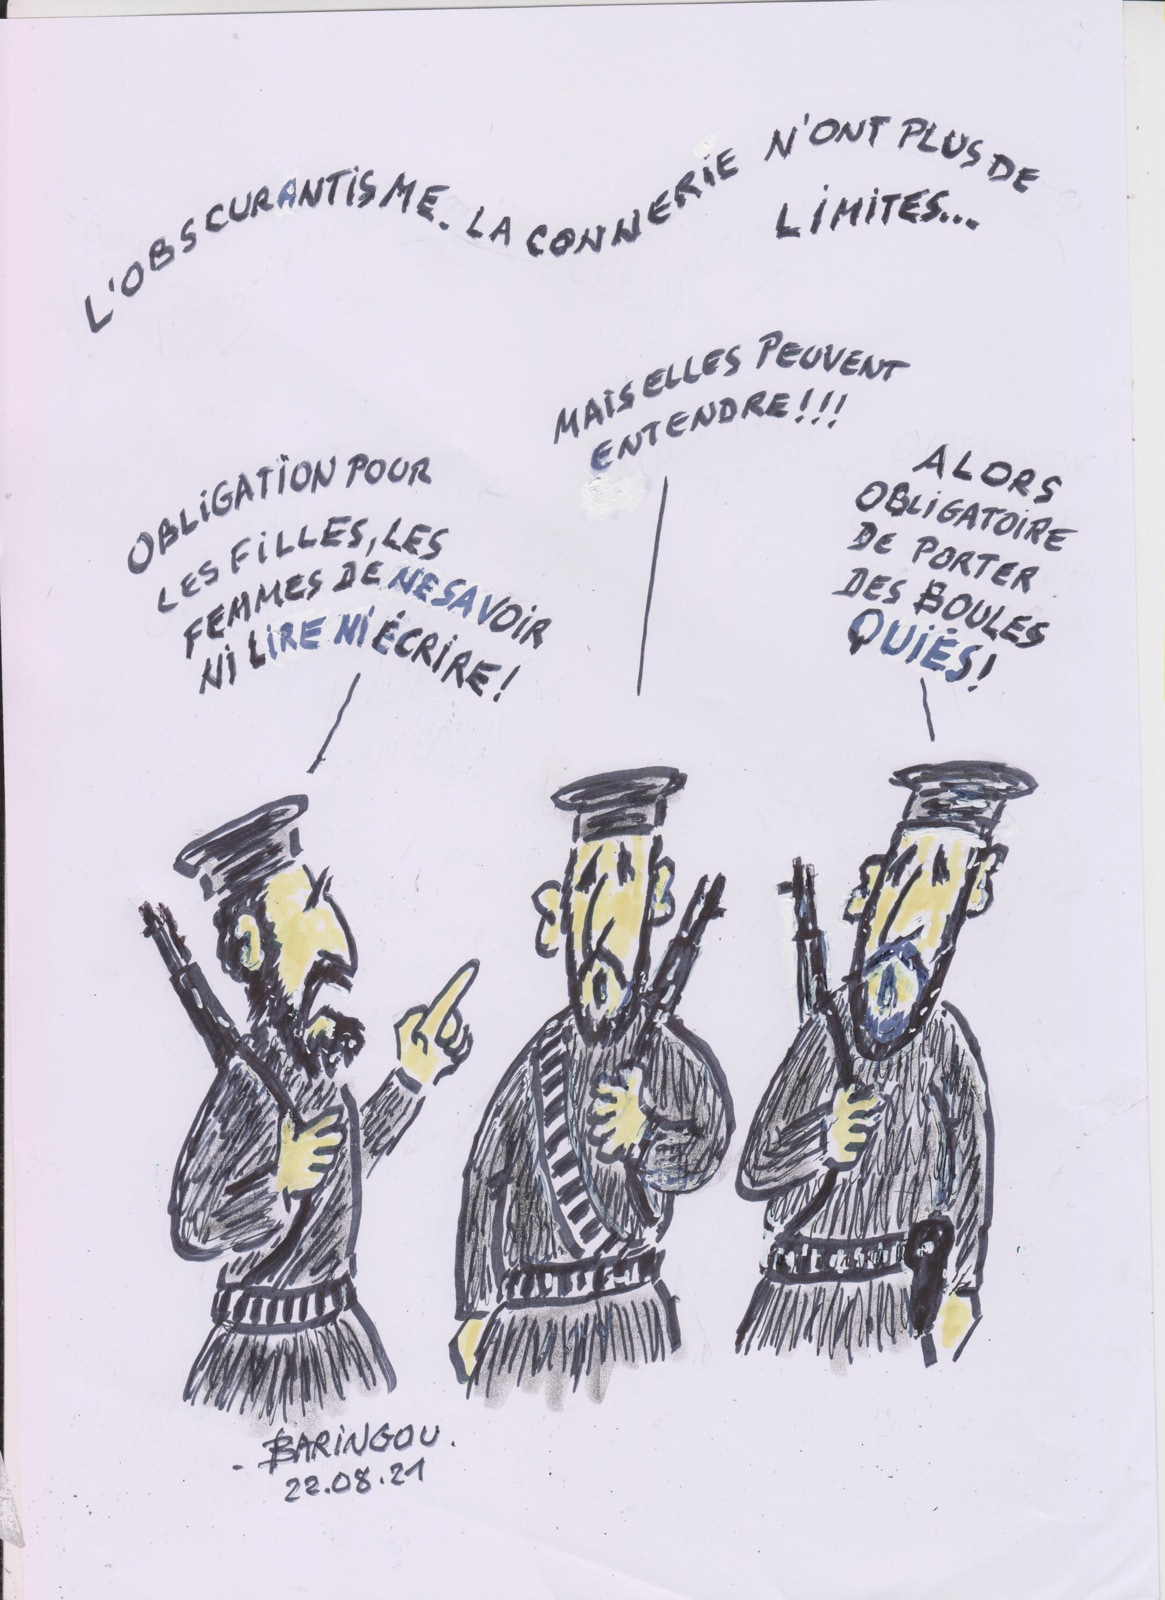 L'OBSCURANTISME. LA CONNERIE N'ONT PLUS DE
LIMITES...
MAIS ELLES PEUVENT
ENTENDRE!!!
OBLIGATION POUR
LES FILLES, LES
FEMMES DE NE SAVOIR
NI LIRE NI ÉCRIRE!
ALORS
OBLIGATOIRE
DE PORTER
DES BOULES
QUIÉS!
BARINGOU.
22.08.21